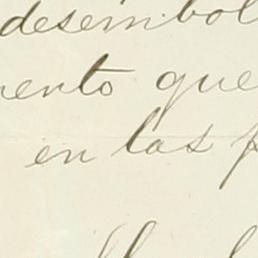 desembol
mento que
en las